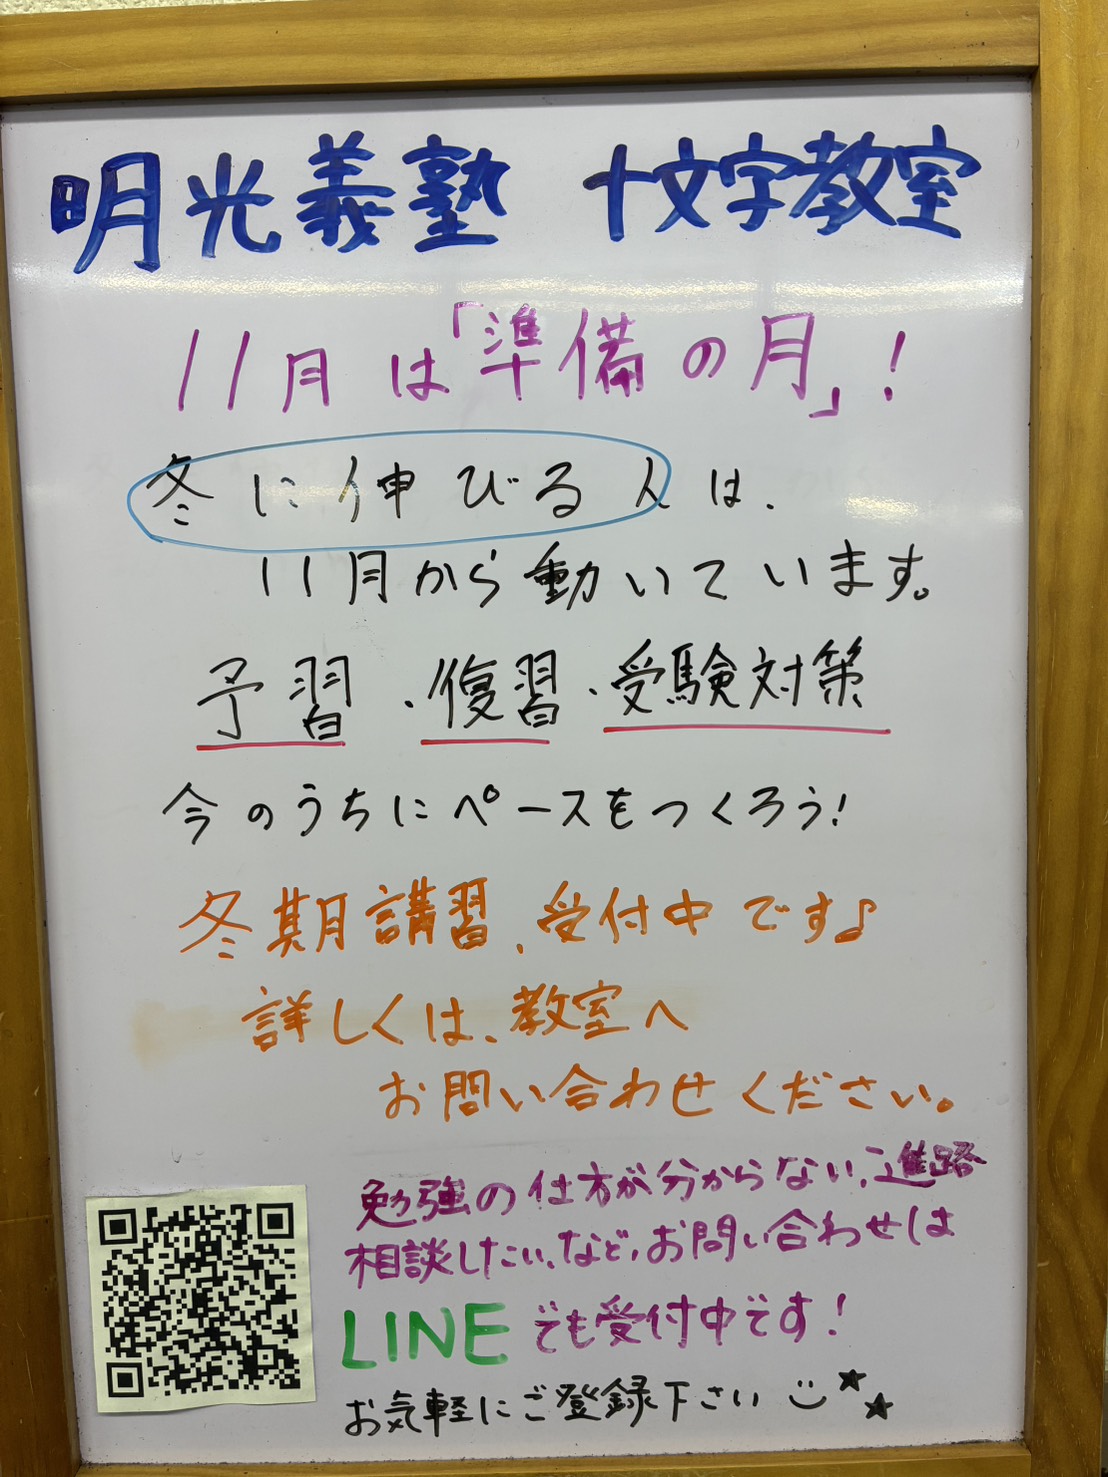 明光義塾 十文字教室
11月は「準備の月」!
冬に伸びる人は、
11月から動いています。
予習・復習・受験対策
今のうちにペースをつくろう!
冬期講習、受付中です♪
詳しくは、教室へ
お問い合わせください。
勉強の仕方が分からない、進路
相談したい、など、お問い合わせは
LINEでも受付中です!
お気軽にご登録下さい